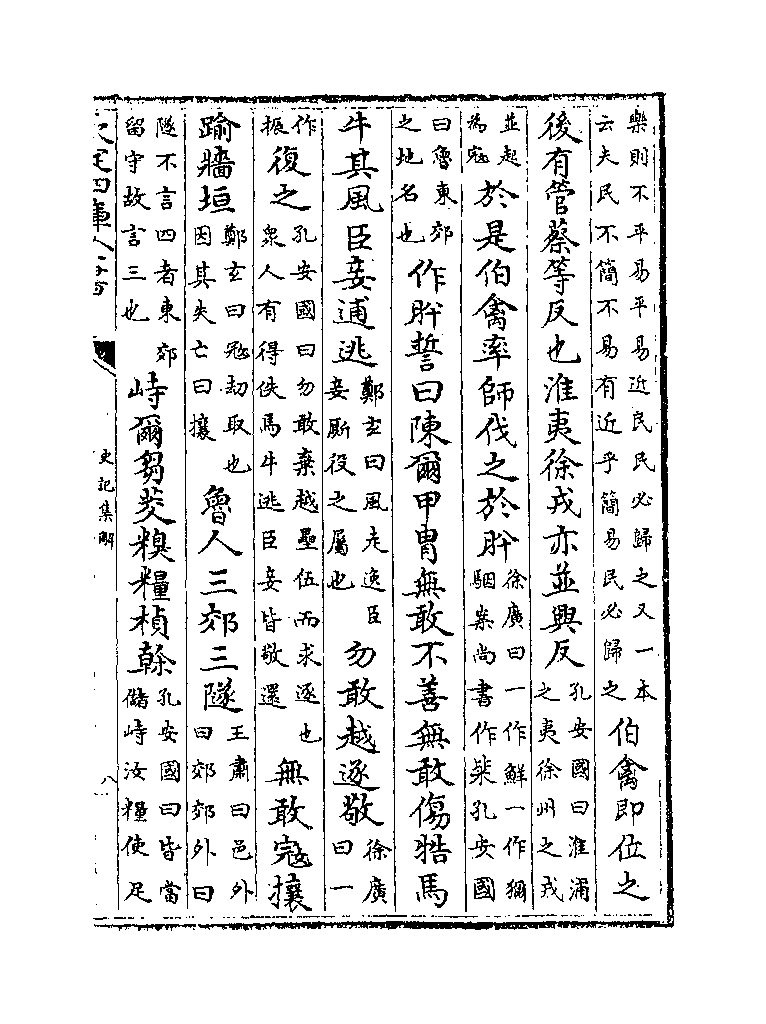 樂則不平易平易近民民必歸之又一本云夫民不簡不易有近乎簡易民必歸之伯禽即位之
後有管蔡等反也淮夷徐戎亦並興反孔安國曰淮浦之夷徐州之戎
並起為寇於是伯禽率師伐之於肸徐廣曰一作鮮一作獮駰案尚書作粊孔安國
曰魯東郊之地名也作肸誓曰陳爾甲冑無敢不善無敢傷牿馬
牛其風臣妾逋逃鄭玄曰風走逸臣妾厮役之屬也勿敢越逐敬徐廣曰一
作振復之孔安國曰勿敢棄越壘伍而求逐也衆人有得佚馬牛逃臣妾皆敬還無敢寇攘
踰牆垣鄭玄曰寇劫取也因其失亡曰攘魯人三郊三隧王肅曰邑外曰郊郊外曰
隧不言四者東郊留守故言三也峙爾芻茭糗糧楨榦孔安國曰皆當儲峙汝糧使足
欽定四庫全書
史記集解
八